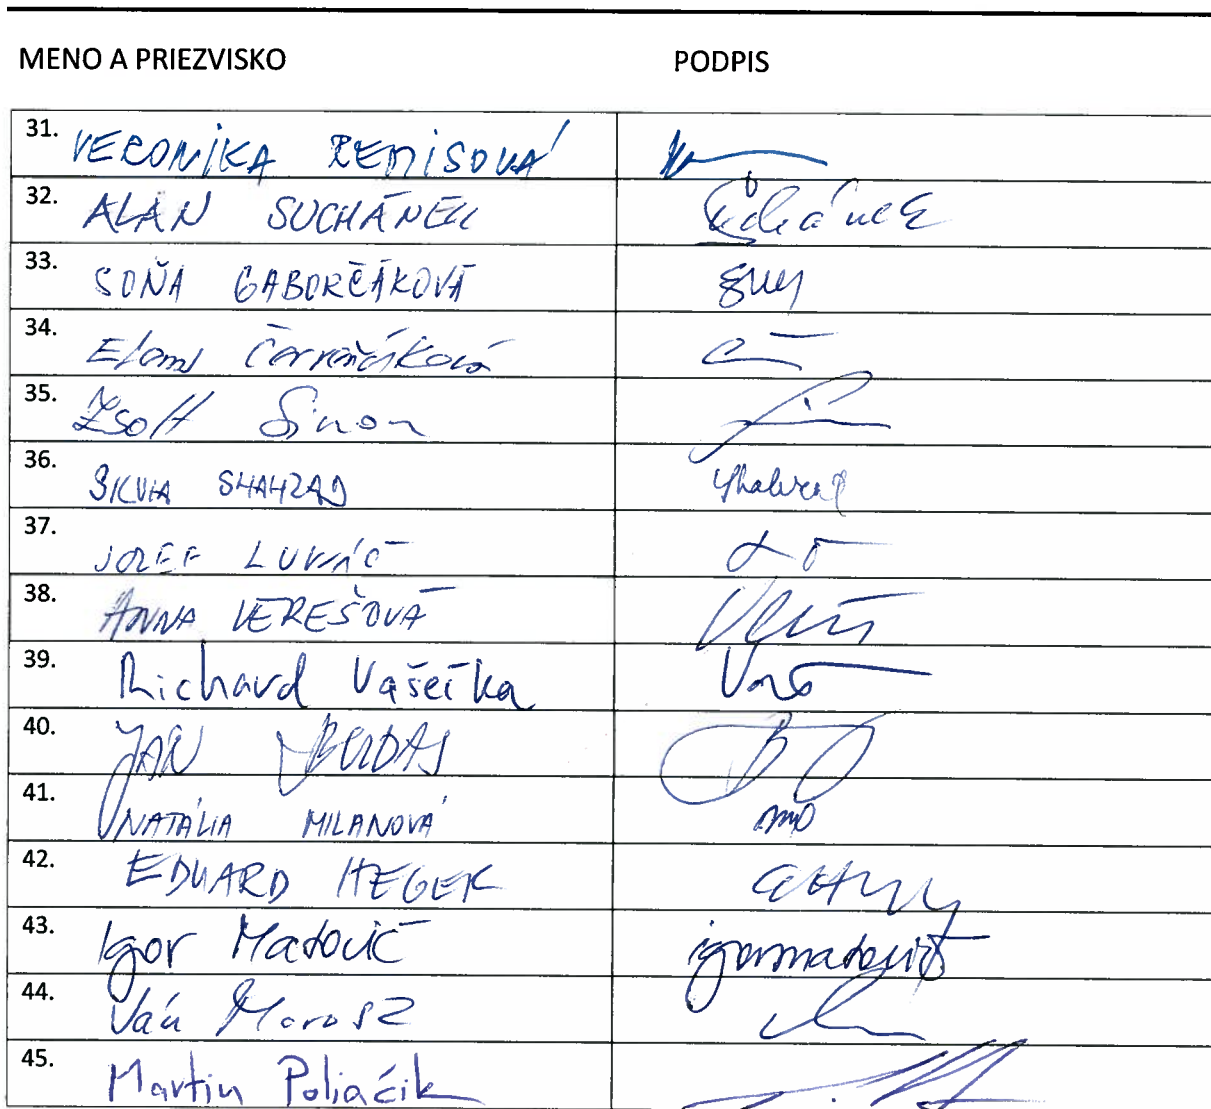 MENO A PRIEZVISKO PODPIS
31. VERONIKA REMIŠOVÁ
32. ALAN SUCHÁNEK Suchánek
33. SOŇA GABORČÁKOVÁ
34. Červeňáková
35. Zsolt Simon
36. SILVIA SHAHZAD Shahzad
37. JOZEF LUKÁČ
38. ANNA VEREŠOVÁ
39. Richard Vašečka
40. JÁN BUDAJ
41. NATÁLIA MILANOVÁ
42. EDUARD HEGER
43. Igor Matovič igormatovič
44. Ján Marosz
45. Martin Poliačik